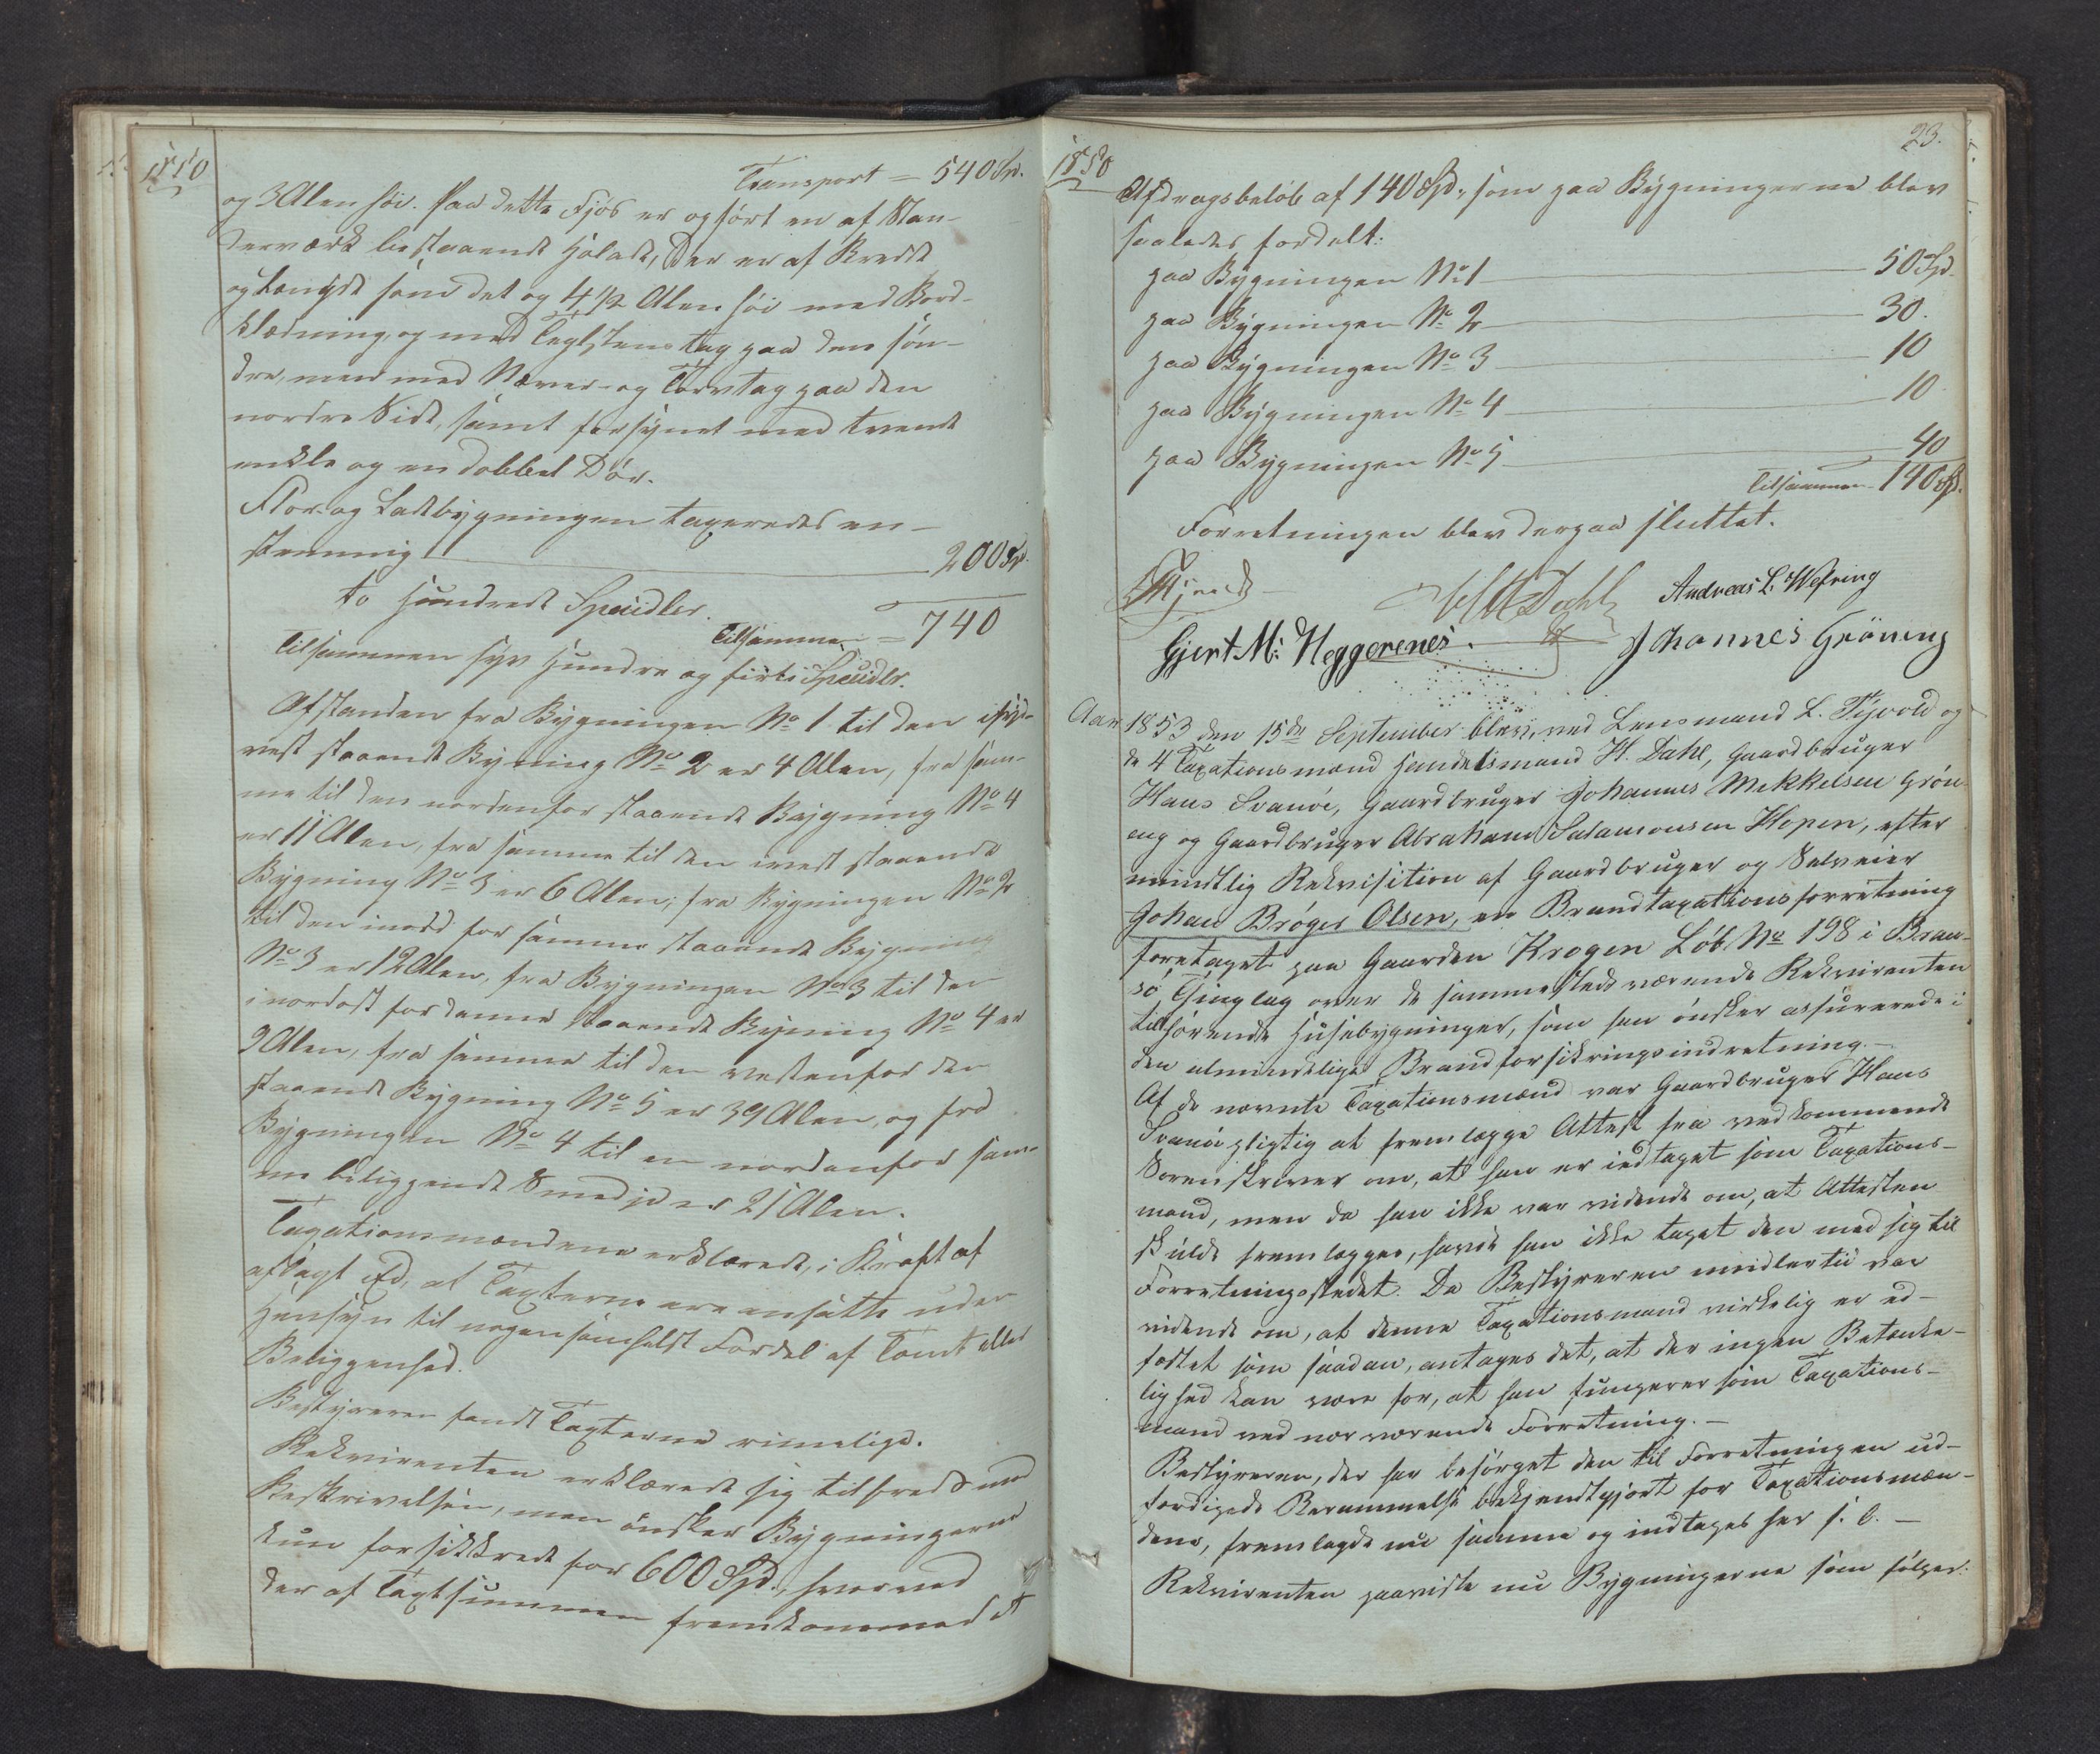 1850
Transport = 540 Spd.
og 3 Alen høi. Paa dette Fjøs er opført en af Stan-
derværk bestaaende Hølade, der er af Bredde
og Længde som det og 4 1/2 Alen høi med Bord-
klædning, og med Teglstenstag paa den søn-
dre, men med Næver- og Torvtag paa den
nordre Side, samt forsynet med tvende
enkle og en dobbel Dør.
Flor og Ladebygningen taxeredes en-
stemmig 200 Sp.
to Hundrede Speciedlr.
Tilsammen = 740
Tilsammen syv Hundre og firti Speciedlr.
Afstanden fra Bygningen No 1 til den i syd-
vest staaende Bygning No 2 er 4 Alen, fra sam-
me til den nordenfor staaende Bygning No 4
er 11 Alen, fra samme til den i vest staaende
Bygning No 3 er 6 Alen; fra Bygningen No 2
til den i nord for samme staaende Bygning
No 3 er 12 Alen, fra Bygningen No 3 til den
i nordost for denne staaende Bygning No 4 er
9 Alen, fra samme til den vestenfor den
staaende Bygning No 5 er 39 Alen, og fra
Bygningen No 4 til en nordenfor sam-
me beliggende Smedje er 21 Alen.
Taxationsmændene erklærede, i Kraft af
aflagt Ed, at Taxterne ere ansatte uden
Hensyn til nogensomhelst Fordel af Tomt eller
Beliggenhed.
Bestyreren fandt Taxterne rimelige.
Rekvirenten erklærede sig tilfreds med
Beskrivelsen, men ønsker Bygningerne
kun forsikkrede for 600 Spd., hvorved
der af Taxtsummen fremkommed et
1850
23.
Afdragsbeløb af 140 Spd., som paa Bygningerne blev
saaledes fordelt:
paa Bygningen No 1 50 Spd.
paa Bygningen No 2 30.
paa Bygningen No 3 10
paa Bygningen No 4 10
paa Bygningen No 5 40
Tilsammen 140 Sp.
Forretningen blev derpaa sluttet.
Dahl Andreas L. Wefring
Gjert M: Heggerenes. Johannes Gröneng
Aar 1853 den 15de September blev, ved Lensmand L. Tysvold og
de 4 Taxationsmænd Handelsmand H. Dahl, Gaardbruger
Hans Svanöe, Gaardbruger Johannes Mekkelsen Grön-
eng og Gaardbruger Abraham Salamonsen Hopen, efter
mundtlig Rekvisition af Gaardbruger og Selveier
Johan Brøger Olsen, en Brandtaxationsforretning
foretaget paa Gaarden Krogen Løb No 198 i Bran-
sö Thinglag over de sammesteds værende Rekvirenten
tilhørende Husebygninger, som han ønsker assurerede i
den almindelige Brandforsikringsindretning.-
Af de nævnte Taxationsmænd var Gaardbruger Hans
Svanöe pligtig at fremlægge Attest fra vedkommende
Sorenskriver om, at han er indtaget som Taxations-
mand, men da han ikke var vidende om, at Attesten
skulde fremlægges, havde han ikke taget den med sig til
Forretningsstedet. Da Bestyreren imidlertid var
vidende om, at denne Taxationsmand virkelig er ed-
fæstet som saadan, antages det, at der ingen Betænke-
lighed kan være for, at han fungerer som Taxations-
mand ved nærværende Forretning.-
Bestyreren, der har besørget den til Forretningen ud-
færdigede Berammelse bekjendtgjort for Taxationsmæn-
dene, fremlagde nu samme og indtages her s. l. -
Rekvirenten paaviste nu Bygningerne som følger: